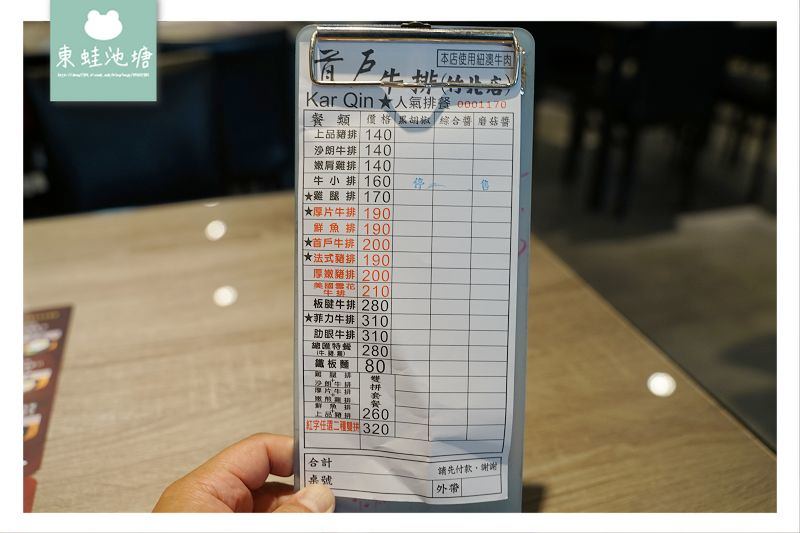 東蛙池塘
首戶牛排(竹北店)
本店使用紐澳牛肉
Kar Qin ★人氣排餐 0001170
餐類 價格 黑胡椒 綜合醬 磨菇醬
上品豬排 140
沙朗牛排 140
嫩肩雞排 140
牛小排 160 停 售
★雞腿排 170
★厚片牛排 190
鮮魚排 190
★首戶牛排 200
★法式豬排 190
厚嫩豬排 200
美國雪花牛排 210
板腱牛排 280
★菲力牛排 310
肋眼牛排 310
總匯特餐(牛.豬.雞) 280
鐵板麵 80
雞腿排
沙朗牛排
厚片牛排
嫩煎雞排
鮮魚排
上品豬排
雙拼套餐 260
紅字任選二種雙拼 320
合計 請先付款，謝謝
桌號 外帶